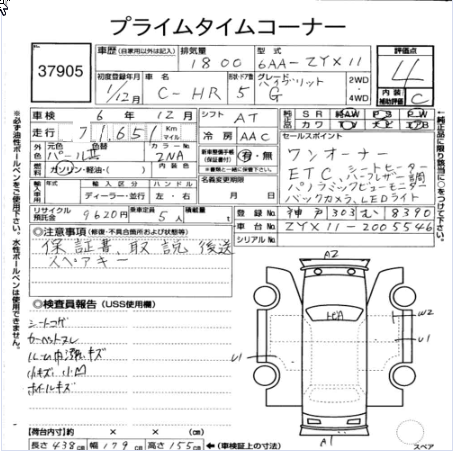 プライムタイムコーナー
37905
車歴 (自家用以外は記入) 排気量 型式 評価点
1800 6AA-ZYX11 4
初度登録年月 車名 形状・ドア数 グレード 2WD
1/12月 C-HR 5 ハイブリット G ・4WD
内装 補助評価 C
車検 6年 12月 シフト AT 純正 SR AW PS PW
走行 71651 Km マイル 冷房 AAC カワ
セールスポイント
外色 元色 色替 カラーNo.
パールⅡ 2NA
新車整備手帳(保証書付) 有・無
※書類と一緒に保管下さい
燃料 ガソリン・軽油・( )
名義変更期限
月 日
輸入車用 輸入区分 ハンドル
ディーラー・並行 左・右
ワンオーナー
ETC、シートヒーター
パノラミックビューモニター
バックカメラ、LEDライト
リサイクル預託金 9620円 乗車定員 5人 積載量 t
登録No. 神戸 303 む 8390
車台No. ZYX11-2005546
シリアルNo.
◎注意事項 (修復・不具合箇所および状態等)
保証書、取説 後送
スペアキー
◎検査員報告 (USS使用欄)
シートコゲ
カーペットスレ
ルーム内張キズ
小キズ 小凹
ホイルキズ
A2
W2
U1
U1
A1
スペア
【荷台内寸】 約 × × (cm)
長さ 438cm 幅 179cm 高さ 155cm ←(車検証上の寸法)
※必ず油性ボールペンをご使用下さい。水性ボールペンは使用できません。